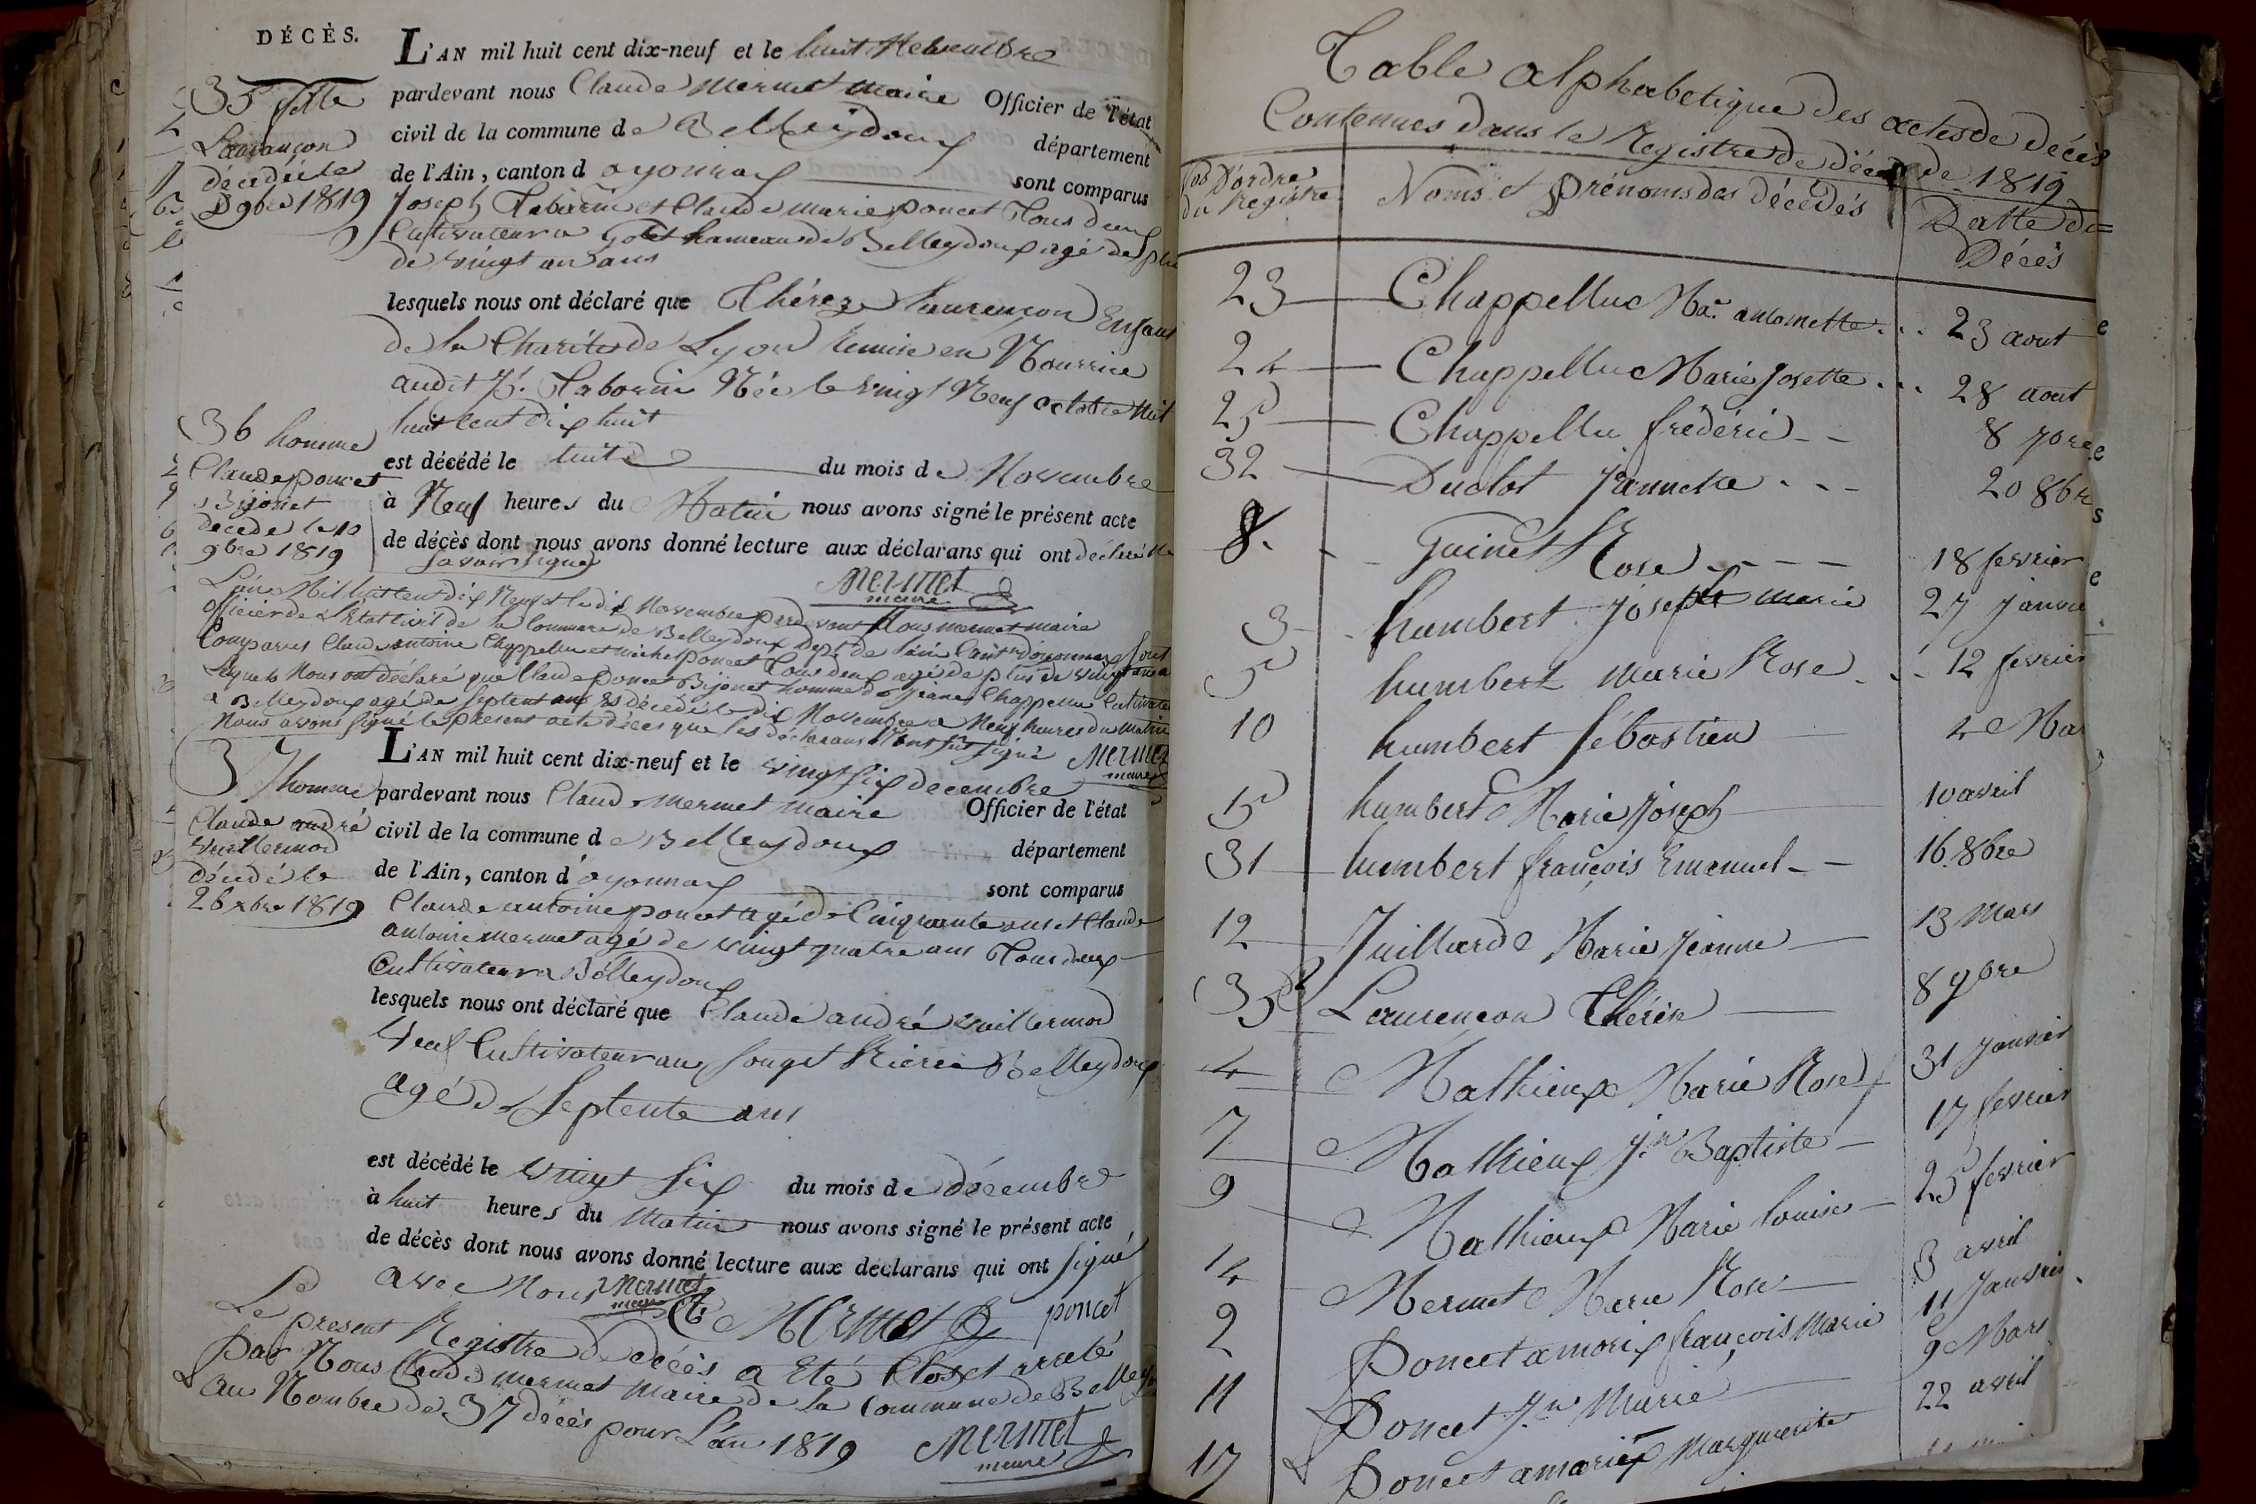 DÉCÈS.
L'AN mil huit cent dix-neuf et le huit Novembre
pardevant nous Claude Mermet Maire Officier de l'état
civil de la commune de Belleydoux département
de l'Ain, canton d oyonnax sont comparus
Joseph Tabourin et Claude Marie poncet Tous deux
Cultivateur a hameau de Belleydoux agé de plus
de vingt un ans
lesquels nous ont déclaré que Thérèze Laurençon Enfant
de la Charité de Lyon Remise en Nourrice
audit Jh. Tabourin Née le vingt Neuf octobre Mil
huit Cent dix huit
est décédé le huit du mois de Novembre
à Neuf heures du Matin nous avons signé le présent acte
de décès dont nous avons donné lecture aux déclarans qui ont déclaré ne
savoir signer
Mermet
maire
35 fille
Laurançon
décédée le
8 9bre 1819
36 homme
Claude poncet
Bijonet
décédé le 10
9bre 1819
L'an Mil huit cent dix Neuf et le dix Novembre pardevant Nous mermet maire
officier de L'Etat Civil de la Commune de Belleydoux Dept de l'ain Canton d'oyonnax sont
Comparus Claude antoine Chappellu et michel poncet Tous deux agé de plus de vingt un ans
lesquels Nous ont déclaré que Claude poncet Bijonet homme de Jeanne Chappellu Cultivateur
a Belleydoux agé de septent ans Est décédé le dix Novembre a Neuf heures du matin
Nous avons signé le présent acte décès que les déclarans N'ont sû signé
Mermet
maire
37 homme
Claude andré
Vuillermoz
décédé le
26 xbre 1819
L'AN mil huit cent dix-neuf et le vingt six décembre
pardevant nous Claude Mermet Maire Officier de l'état
civil de la commune de Belleydoux département
de l'Ain, canton d'oyonnax sont comparus
Claude antoine poncet agé de Cinquante ans et Claude
antoine mermet agé de vingt quatre ans Tous deux
Cultivateur a Belleydoux
lesquels nous ont déclaré que Claude andré vuillermoz
Veuf Cultivateur au Belleydoux
agé de Septente ans
est décédé le vingt six du mois de décembre
à huit heures du Matin nous avons signé le présent acte
de décès dont nous avons donné lecture aux déclarans qui ont signé
avec Nous Mermet
maire
Mermet poncet
Le present Registre de décès a Eté Clos et arreté
par Nous Claude mermet Maire de la Commune de Belleydoux
au Nombre de 37 décès pour L'an 1819
Mermet
maire
Table alphabetique des actes de décès
Contenues dans le Registre de décès de 1819
Nos D'ordre
du Registre
Noms et prénoms des décédés
Datte de
Décès
23 Chappelluc Mar. antoinette 23 aout
24 Chappelluc Marie Josette 28 aout
25 Chappellu frédéric 8 7bre
32 Duclot Jeannette 20 8bre
8. Guinet Rose 18 fevrier
3 humbert Joseph marie 27 Janvie
5 humbert Marie Rose 12 fevrier
10 humbert Sébastien 4 Mar
15 humbert Marie Joseph 10 avril
31 humbert françois Emanuel 16 8bre
12 Juillard Marie Jeanne 13 Mars
35 Laurençon Thérèse 8 9bre
4 Mathieux Marie Rose 31 Janvier
7 Mathieux Jn Baptiste 17 fevrier
9 Mathieux Marie louise 25 fevrier
14 Mermet Marie Rose 3 avril
2 Poncet amorix françois Marie 11 Janvier
11 Poncet Jn Marie 9 Mars
17 Poncet amorix Marguerite 22 avril